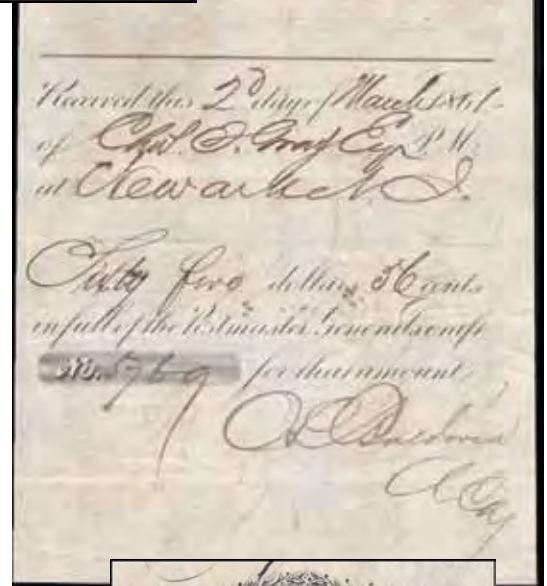 Received this 2d day of March 1861
of Chas. T. Gray Esqr P. M.
at Newark N. J.
Sixty five dollars 36 cents
in full of the Postmaster General's
No. 5769 for that amount
Baldwin